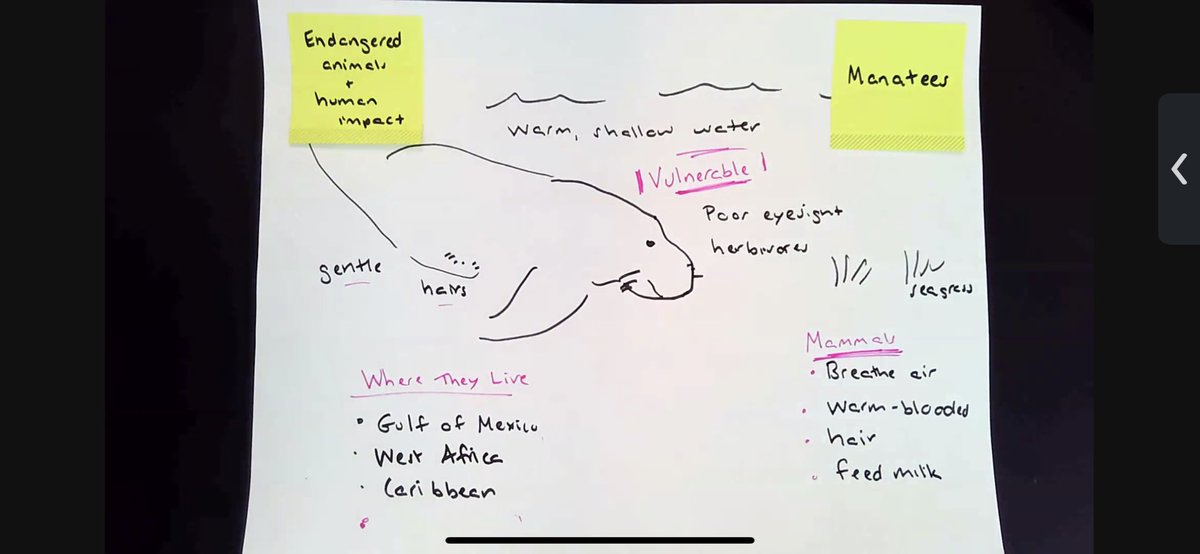 Endangered
animals
+
human
impact
Manatees
warm, shallow water
! Vulnerable !
Poor eyesight
herbivores
gentle
hairs
seagrass
Where They Live
• Gulf of Mexico
• West Africa
• Caribbean
•
Mammals
• Breathe air
• Warm-blooded
• hair
• feed milk